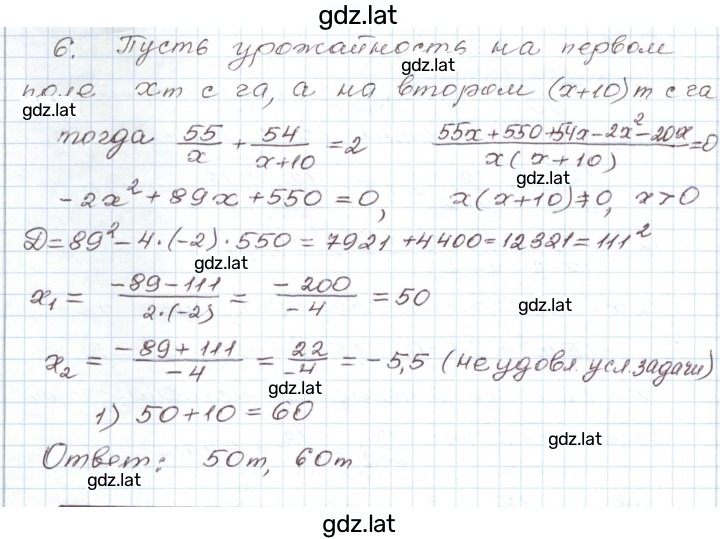 gdz.lat
6. Пусть урожайность на первом
gdz.lat
поле хт с га, а на втором (х+10)т с га
gdz.lat
тогда 55/x + 54/(x+10) = 2 (55x+550+54x-2x²-20x)/(x(x+10)) = 0
gdz.lat
-2x²+89x+550=0, x(x+10)≠0, x>0
D=89²-4·(-2)·550=7921+4400=12321=111²
gdz.lat
x₁ = (-89-111)/(2·(-2)) = (-200)/(-4) = 50
gdz.lat
x₂ = (-89+111)/(-4) = 22/(-4) = -5,5 (не удовл. усл. задачи)
gdz.lat
1) 50+10=60
gdz.lat
Ответ: 50т, 60т
gdz.lat
gdz.lat